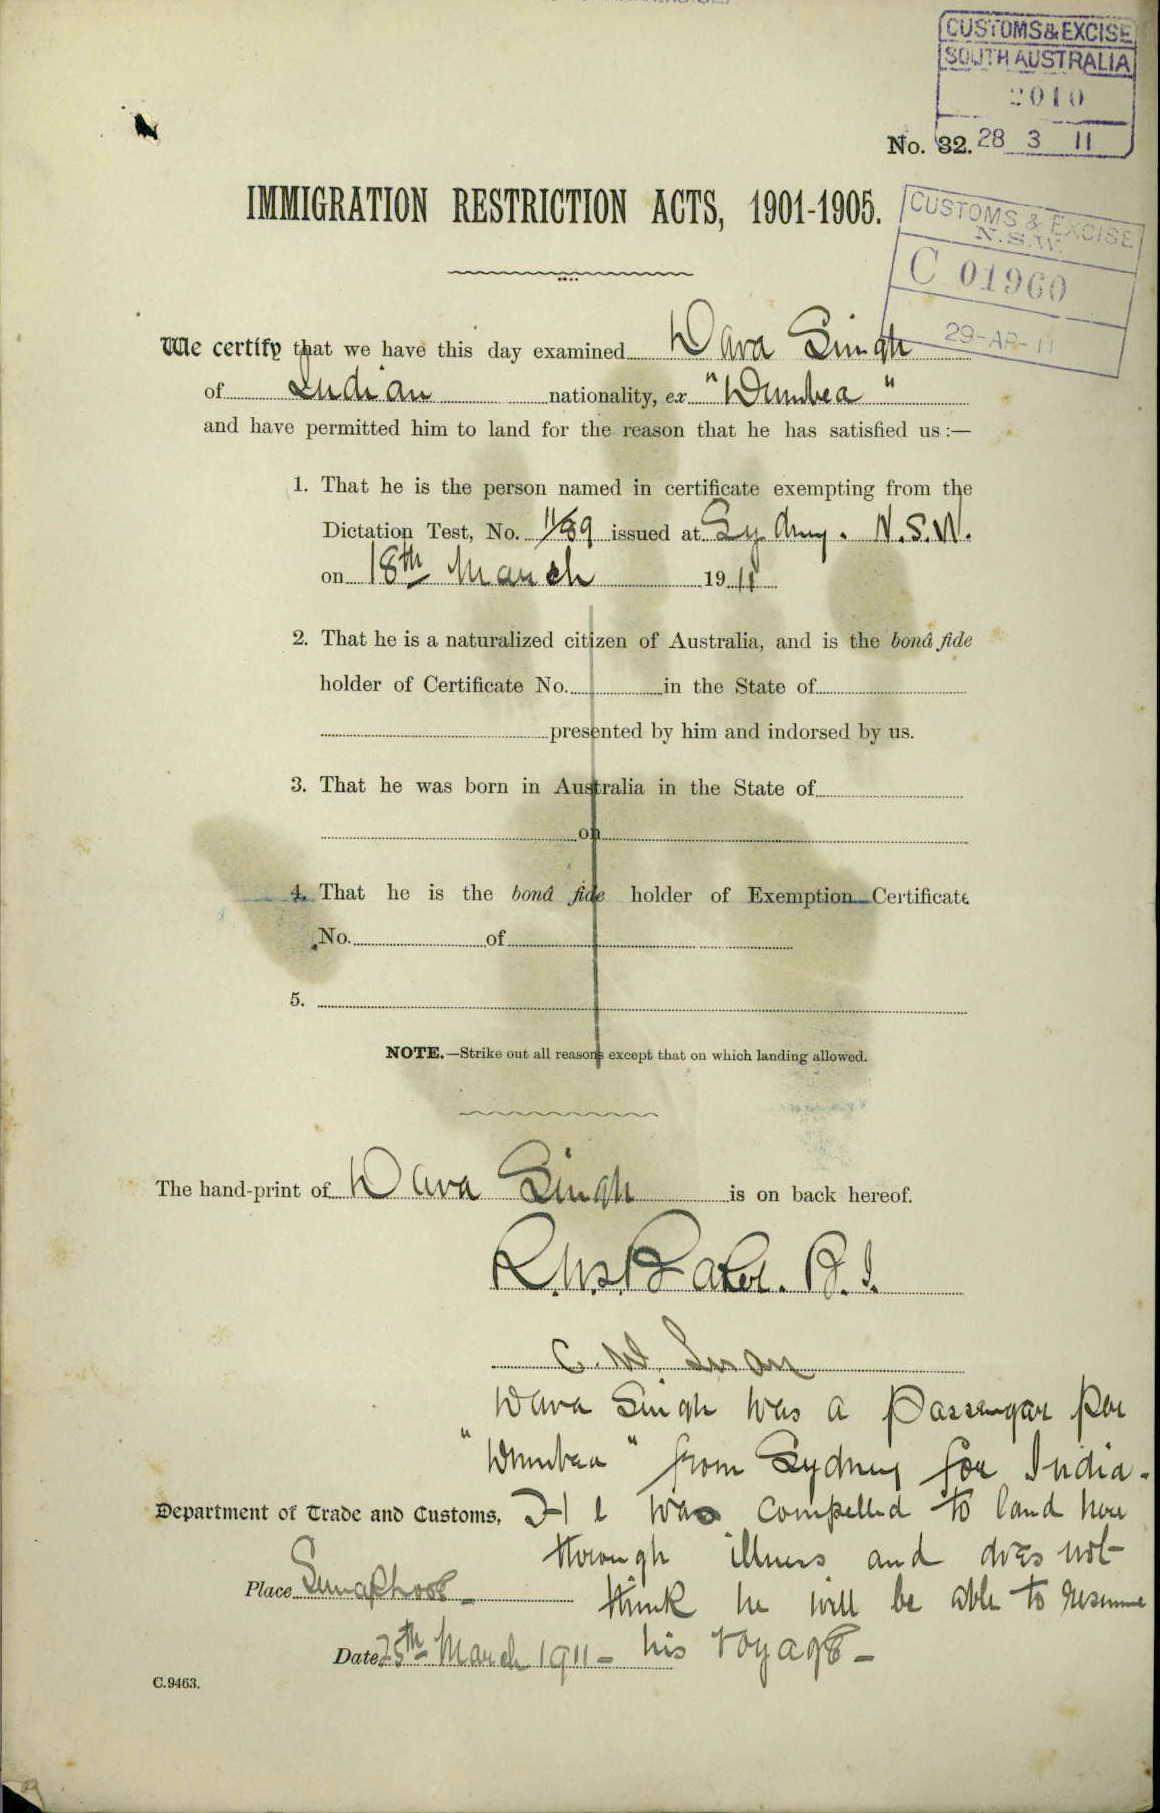 CUSTOMS & EXCISE
SOUTH AUSTRALIA
2010
28 3 11
No. 32.
IMMIGRATION RESTRICTION ACTS, 1901-1905.
CUSTOMS & EXCISE
N.S.W.
C 01960
29-AP-11
We certify that we have this day examined Wava Singh
of Indian nationality, ex "Wimbea"
and have permitted him to land for the reason that he has satisfied us :—
1. That he is the person named in certificate exempting from the
Dictation Test, No. 11/89 issued at Sydney. N.S.W.
on 18th March 1911
2. That he is a naturalized citizen of Australia, and is the bonâ fide
holder of Certificate No. in the State of
presented by him and indorsed by us.
3. That he was born in Australia in the State of
on
4. That he is the bonâ fide holder of Exemption Certificate
No. of
5.
NOTE.—Strike out all reasons except that on which landing allowed.
The hand-print of Wava Singh is on back hereof.
Baker. B.I.
C. W.
Wava Singh was a passengar per
" " from Sydney for India.
He was compelled to land here
Department of Trade and Customs,
through illness and does not
Place Semaphore
think he will be able to resume
Date 25th March 1911 his voyage
C.9463.